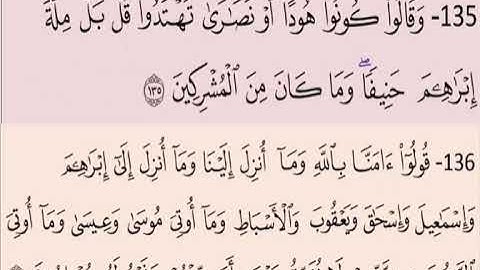 135- وَقَالُوا۟ كُونُوا۟ هُودًا أَوْ نَصَـٰرَىٰ تَهْتَدُوا۟ قُلْ بَلْ مِلَّةَ
إِبْرَٰهِـۧمَ حَنِيفًا ۖ وَمَا كَانَ مِنَ ٱلْمُشْرِكِينَ ١٣٥
136- قُولُوٓا۟ ءَامَنَّا بِٱللَّهِ وَمَآ أُنزِلَ إِلَيْنَا وَمَآ أُنزِلَ إِلَىٰٓ إِبْرَٰهِـۧمَ
وَإِسْمَـٰعِيلَ وَإِسْحَـٰقَ وَيَعْقُوبَ وَٱلْأَسْبَاطِ وَمَآ أُوتِىَ مُوسَىٰ وَعِيسَىٰ وَمَآ أُوتِىَ